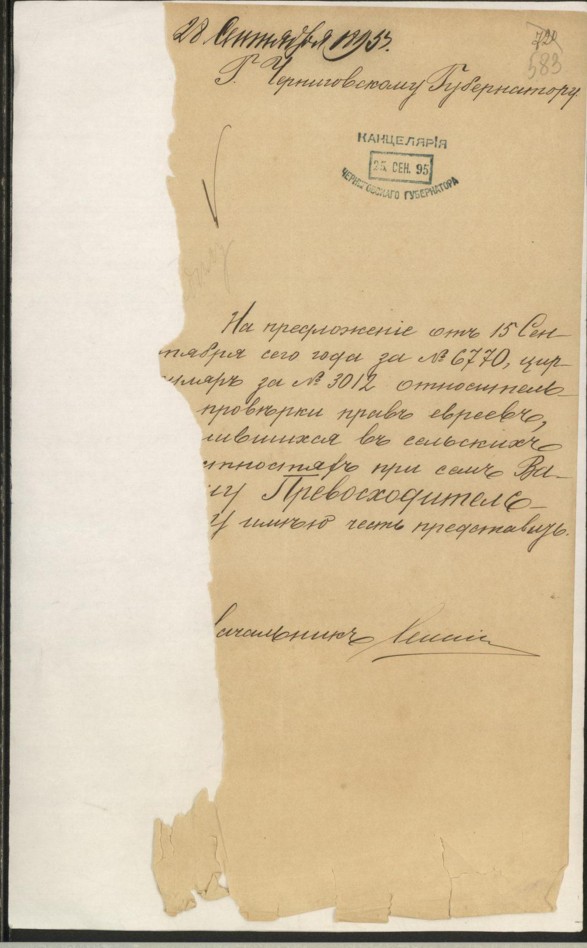 28 Сентября 1895г.
720
583
Г. Черниговскому Губернатору
КАНЦЕЛЯРІЯ
25. СЕН. 95
ЧЕРНИГОВСКАГО ГУБЕРНАТОРА
На предложеніе отъ 15 Сен-
тября сего года за № 6770, цир-
куляръ за № 3012 относитель-
провѣрки правъ евреевъ,
лившихся въ сельскихъ
стностяхъ при семъ Ва-
му Превосходитель-
у имѣю честь представить.
ачальникъ